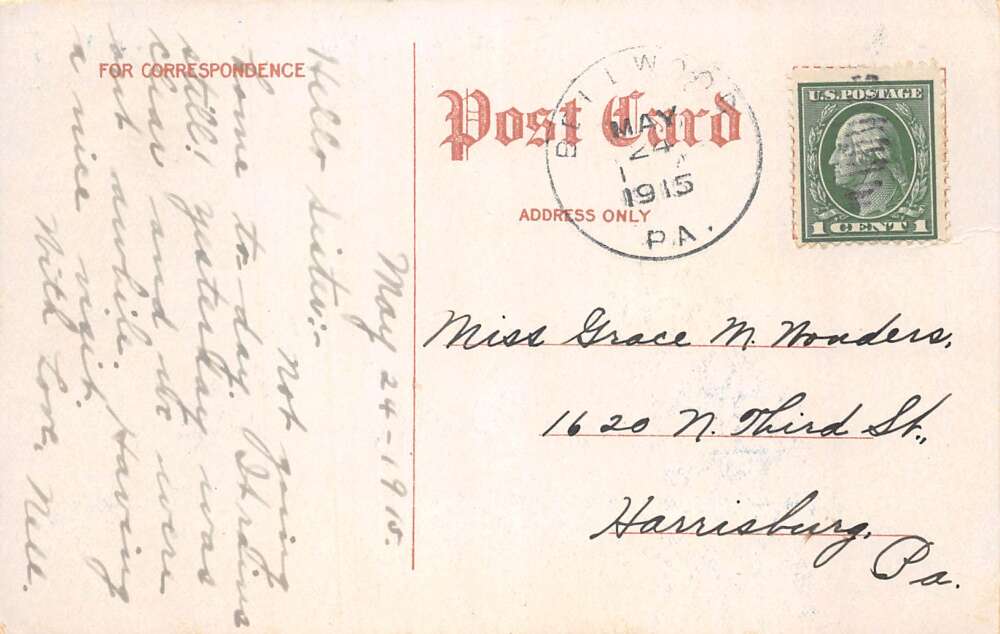 FOR CORRESPONDENCE
May 24-1915.
Hello sister:-
Not going
home to-day. It rains
still! yesterday was
clear and we were
out awhile. Having
a nice visit.
With Love, Nell.
Post Card
ADDRESS ONLY
BELLWOOD
MAY
24
1915
PA.
U.S. POSTAGE
1 CENT 1
Miss Grace M. Wonders,
1620 N. Third St.,
Harrisburg,
Pa.